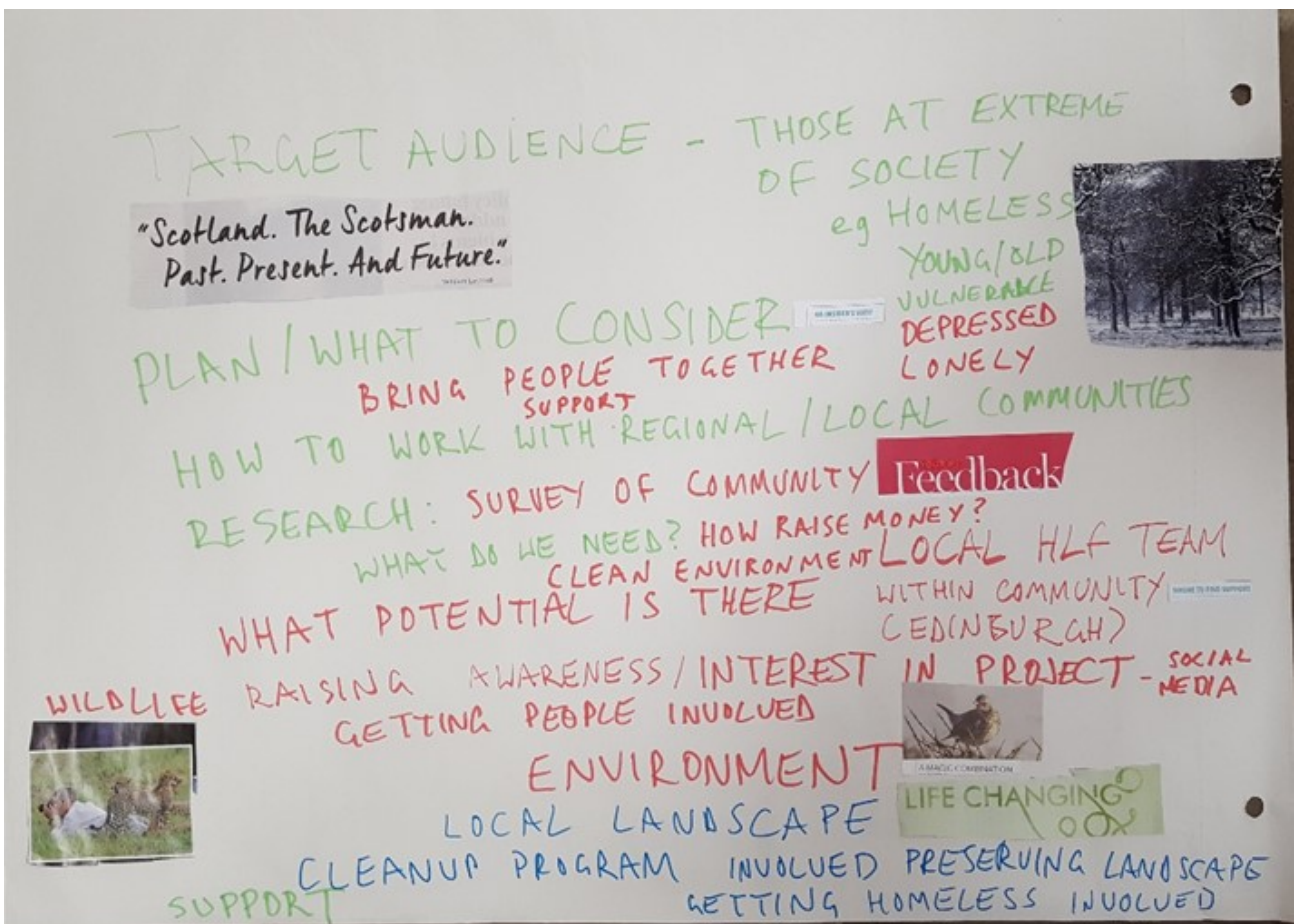 TARGET AUDIENCE - THOSE AT EXTREME
OF SOCIETY
eg HOMELESS
YOUNG/OLD
VULNERABLE
DEPRESSED
LONELY
"Scotland. The Scotsman.
Past. Present. And Future."
PLAN/WHAT TO CONSIDER
BRING PEOPLE TOGETHER
SUPPORT
HOW TO WORK WITH REGIONAL/LOCAL COMMUNITIES
RESEARCH: SURVEY OF COMMUNITY Feedback
WHAT DO WE NEED? HOW RAISE MONEY?
CLEAN ENVIRONMENT LOCAL HLF TEAM
WHAT POTENTIAL IS THERE WITHIN COMMUNITY
(EDINBURGH)
WILDLIFE RAISING AWARENESS/INTEREST IN PROJECT - SOCIAL
MEDIA
GETTING PEOPLE INVOLVED
A MAGIC COMBINATION
ENVIRONMENT
LIFE CHANGING
LOCAL LANDSCAPE
CLEANUP PROGRAM INVOLVED PRESERVING LANDSCAPE
SUPPORT GETTING HOMELESS INVOLVED